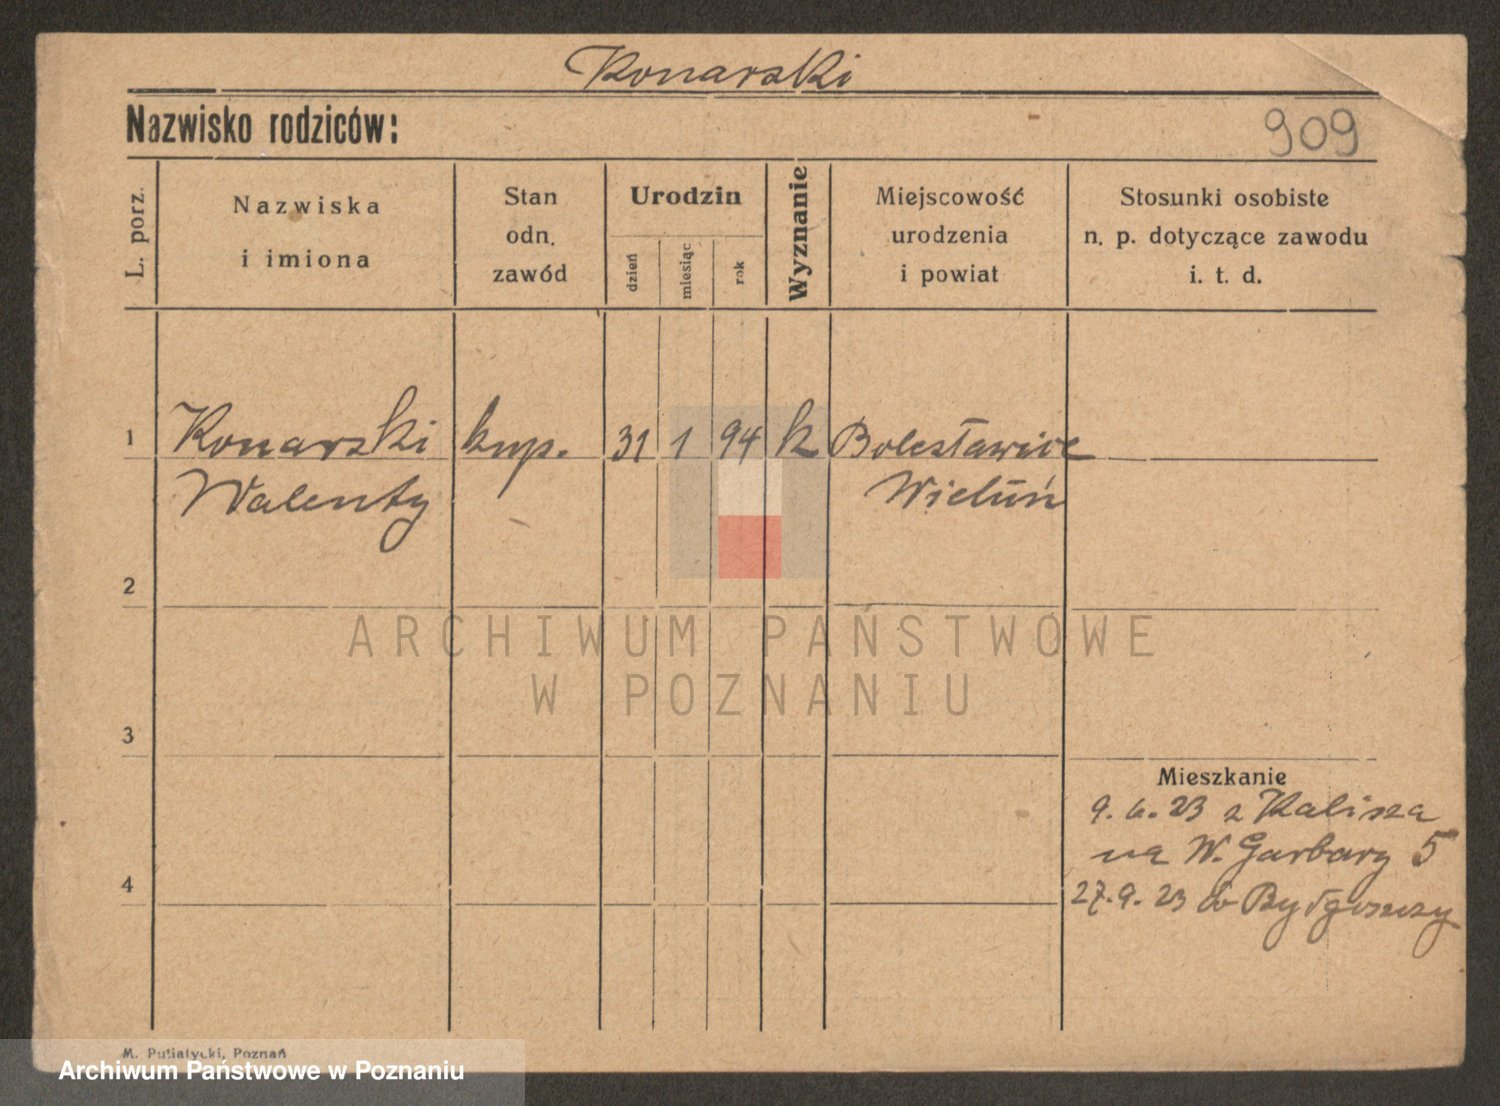 Konarski
Nazwisko rodziców:
909
L. porz.
Nazwiska
i imiona
Stan
odn.
zawód
Urodzin
dzień
miesiąc
rok
Wyznanie
Miejscowość
urodzenia
i powiat
Stosunki osobiste
n. p. dotyczące zawodu
i. t. d.
1 Konarski kup. 31 1 94 k Bolesławice
Walenty Wieluń
2
ARCHIWUM PAŃSTWOWE
W POZNANIU
3
Mieszkanie
9.6.23 z Kalisza
na W. Garbary 5
4
27.9.23 do Bydgoszczy
M. Putiatycki, Poznań
Archiwum Państwowe w Poznaniu